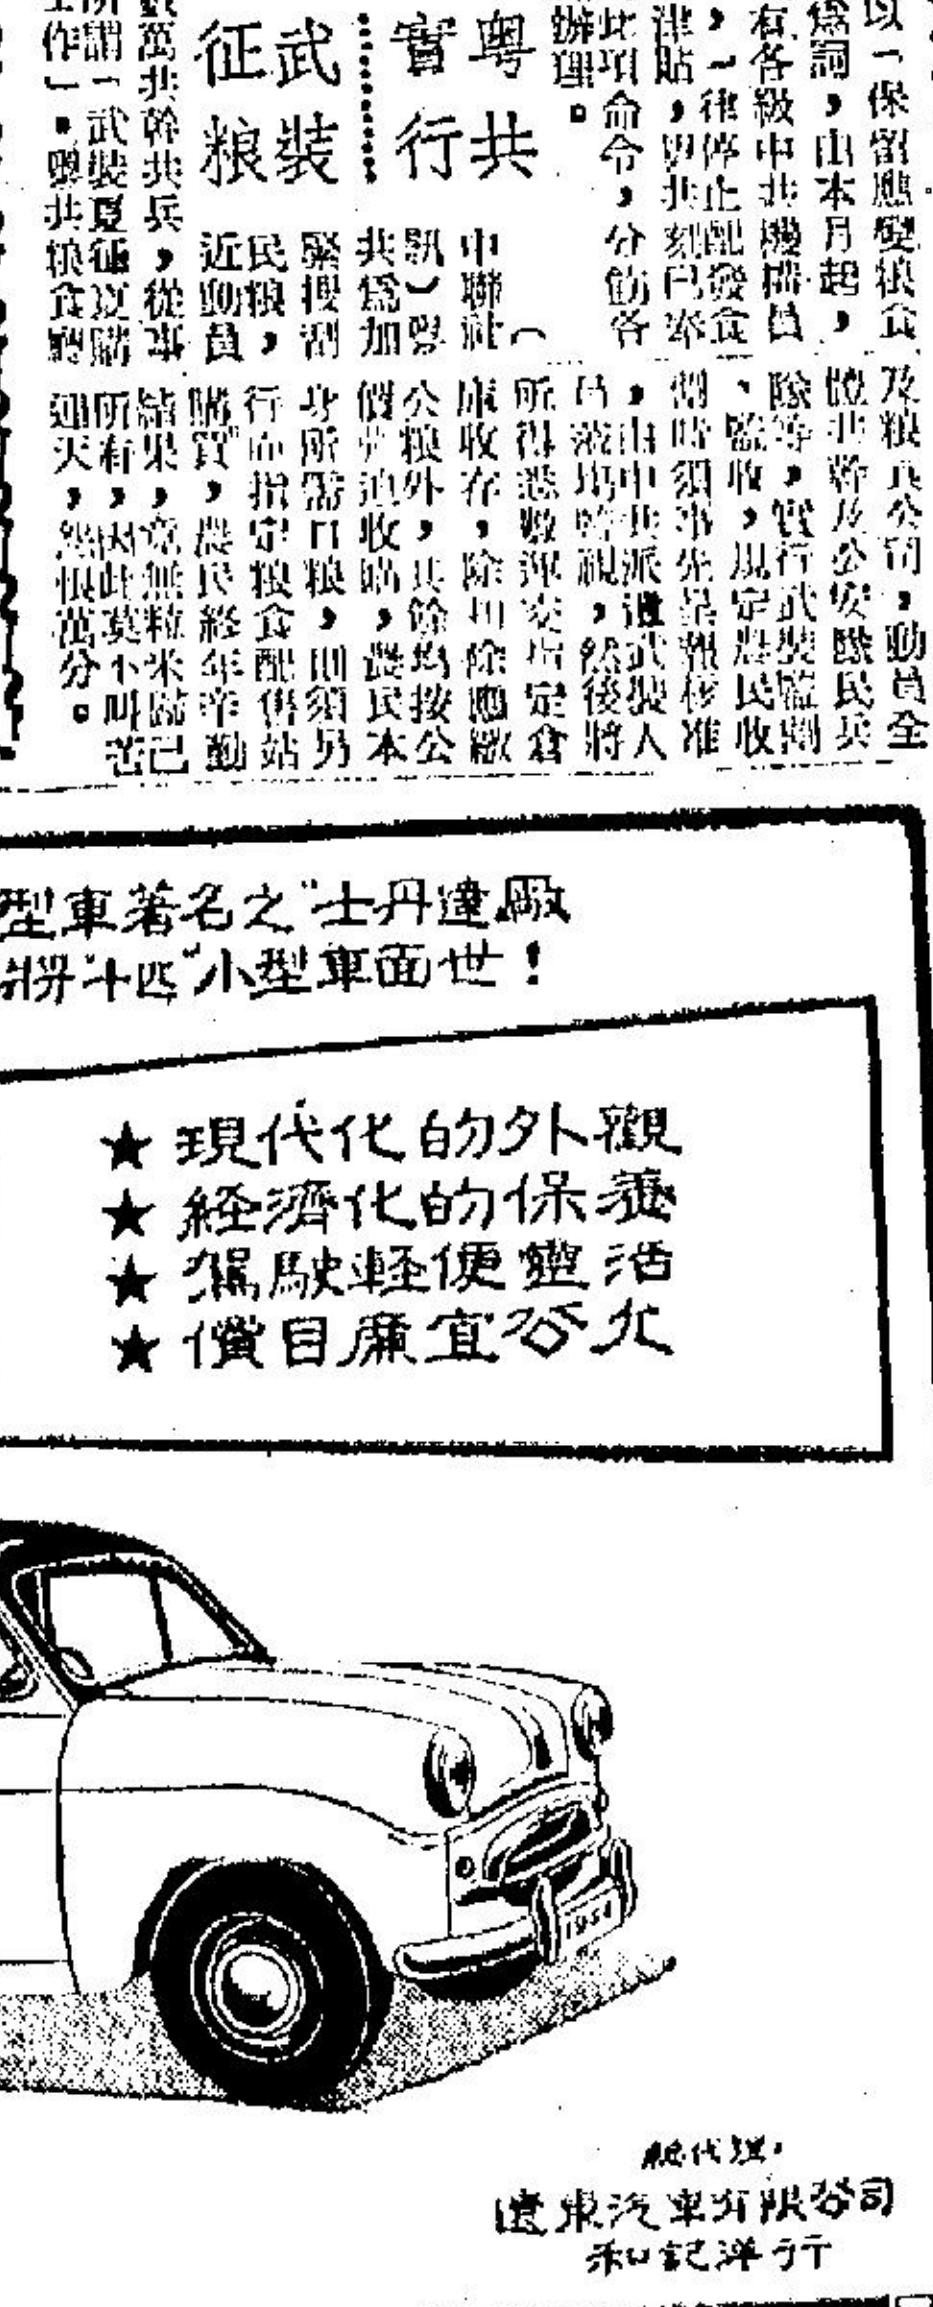 以「保留應變粮食
爲詞，由本月起，
有各級中共機構員
，一律停止配發食
津貼，粵共刻已奉
此項命令，分飭各
辦理。
粵共實行
武裝征粮
（中聯社
訊）粵
共爲加
緊搜刮
民粮，
近動員
數萬共幹共兵，從事
所謂「武裝夏征夏購
工作」。粵共粮食廳
及粮食公司，動員全
體共幹及公安隊民兵
隊等，實行武裝監割
、監收，規定農民收
割時須事先呈報核准
，由中共派遣武裝人
員蒞場監視，然後將
所得悉數運交指定倉
庫收存，除扣除應繳
公粮外，其餘均按公
價強迫收購，農民本
身所需口粮，則須另
行向指定粮食配售站
購買，農民終年辛勤
結果，竟無粒米歸己
所有，因此莫不叫苦
連天，怨恨萬分。
型車著名之"士丹達廠
將"十匹"小型車面世！
★現代化的外觀
★經濟化的保養
★駕駛輕便靈活
★價目廉宜公允
1954
總代理：
遠東汽車有限公司
和記洋行